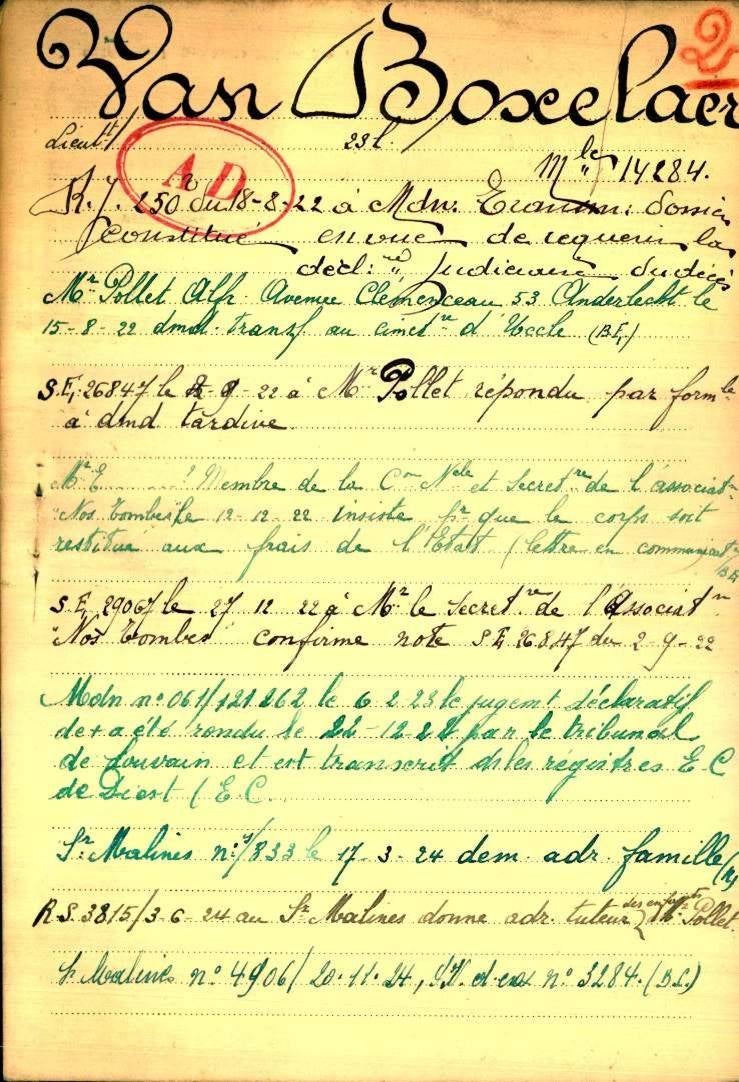 2
Van Boxelaer
Lieutt 23 l.
AD
Mle 14284.
R.J. 250 du 18-8-22 à Mdn. : Dossier
constitué en vue de requérir la
décl: on judiciaire du décès
Mr Pollet Alfr. Avenue Clemenceau 53 Anderlecht le
15-8-22 dmd. transf. au cimetre d'Uccle (BE.)
S.E. 26847 le 2 9 - 22 à Mr Pollet répondu par formle
à dmd tardive.
Mr E ? Membre de la Con Nale et Secretre de l'associatn
"Nos Tombes" le 12-12-22 insiste pr que le corps soit
restitué aux frais de l'Etat (lettre en communicatn
BE
S.E. 29067 le 27 12 22 à Mr le Secretre de l'Associatn
"Nos Tombes" confirme note S.E. 26847 du 2-9-22
Mdn no 061/121.262 le 6 2 23 le jugemt déclaratif
de + a été rendu le 22-12-22 par le tribunal
de Louvain et est transcrit ds les régistres E.C
de Diest (E.C.
Sr Malines no /833 le 17-3-24 dem. adr. famille
R.S. 3815/3-6-24 au Sr Malines donne adr. tuteur des enfants Mr Pollet.
Sr Malines no 4906/20.11.24, no 3284. (B.S.)